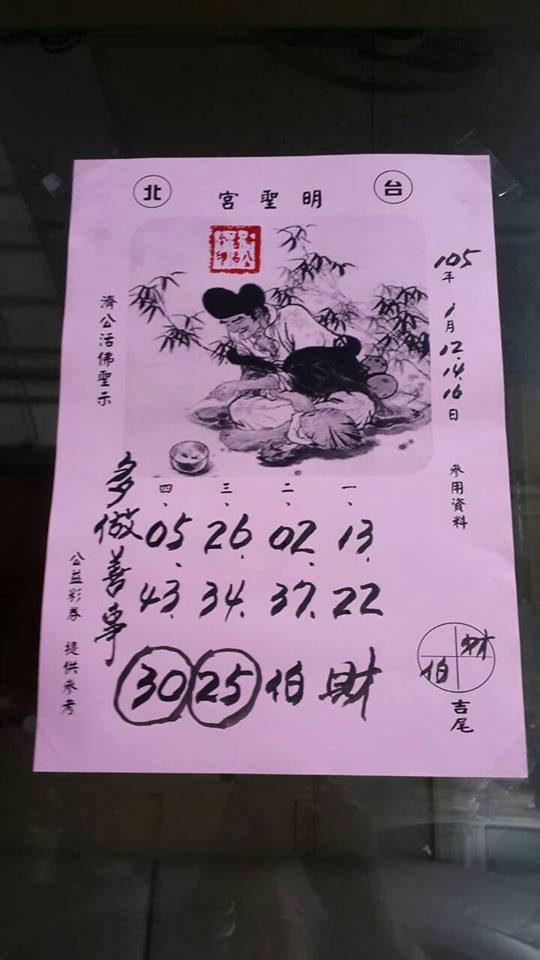 台北
明聖宮
105年1月12.14.16日
參用資料
濟公活佛聖示
一、 二、 三、 四、
13. 02. 26. 05
22 37. 34. 43.
財 伯 25 30
多做善事
公益彩券 提供參考
財
伯
吉尾